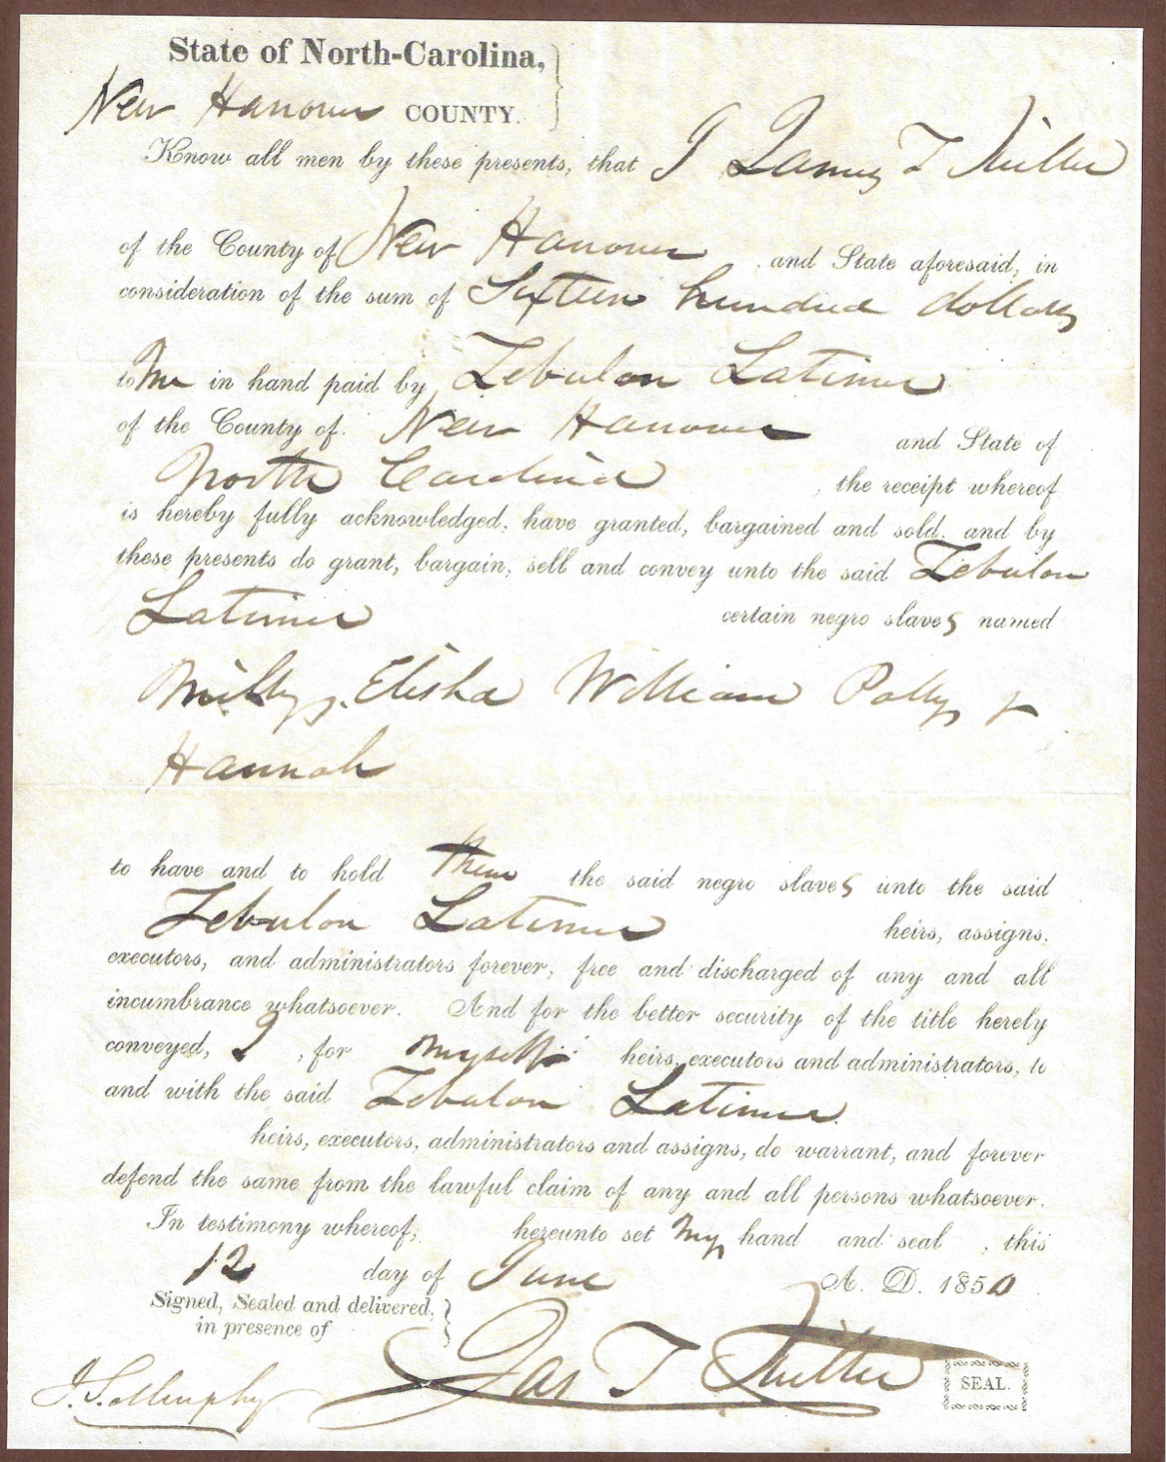 State of North-Carolina,
New Hanover COUNTY.
Know all men by these presents, that I James T Miller
of the County of New Hanover and State aforesaid, in
consideration of the sum of Sixteen hundred dollars
to me in hand paid by Zebulon Latimer
of the County of New Hanover and State of
North Carolina , the receipt whereof
is hereby fully acknowledged, have granted, bargained and sold, and by
these presents do grant, bargain, sell and convey unto the said Zebulon
Latimer certain negro slaves named
Milly, Elisha William Polly &
Hannah
to have and to hold them the said negro slaves unto the said
Zebulon Latimer heirs, assigns,
executors, and administrators forever, free and discharged of any and all
incumbrance whatsoever. And for the better security of the title herely
conveyed, I , for myself heirs, executors and administrators, to
and with the said Zebulon Latimer
heirs, executors, administrators and assigns, do warrant, and forever
defend the same from the lawful claim of any and all persons whatsoever.
In testimony whereof, hereunto set my hand and seal , this
12 day of June A. D. 1850
Signed, Sealed and delivered,
in presence of
Jas T Miller SEAL.
Murphy